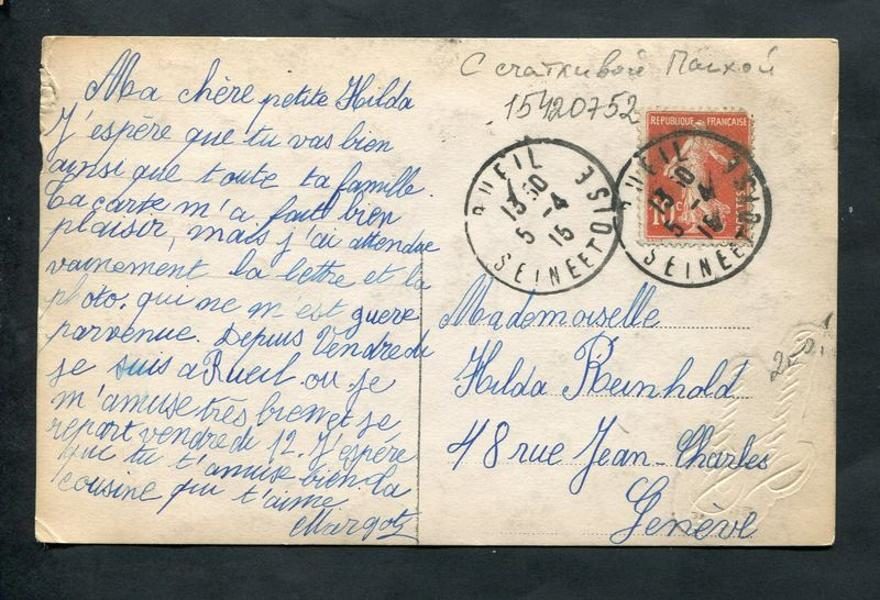 Ma chère petite Hilda
J'espère que tu vas bien
ainsi que toute ta famille.
Ca carte m'a fait bien
plaisir, mais j'ai attendue
vainement la lettre et la
photo, qui ne m'est guere
parvenue. Depuis Vendredi
je suis a Rueil ou je
m'amuse très bien et je
repart vendredi 12. J'espère
que tu t'amuse bien. La
cousine qui t'aime
Margot
С счатливой Пасхой
15420752
REPUBLIQUE FRANÇAISE
10c
POSTES
RUEIL
13 10
5 -4
15
SEINE ET OISE
RUEIL
13 10
5 -4
15
SEINE ET OISE
Mademoiselle
Hilda Reinhold
48 rue Jean-Charles
Genève